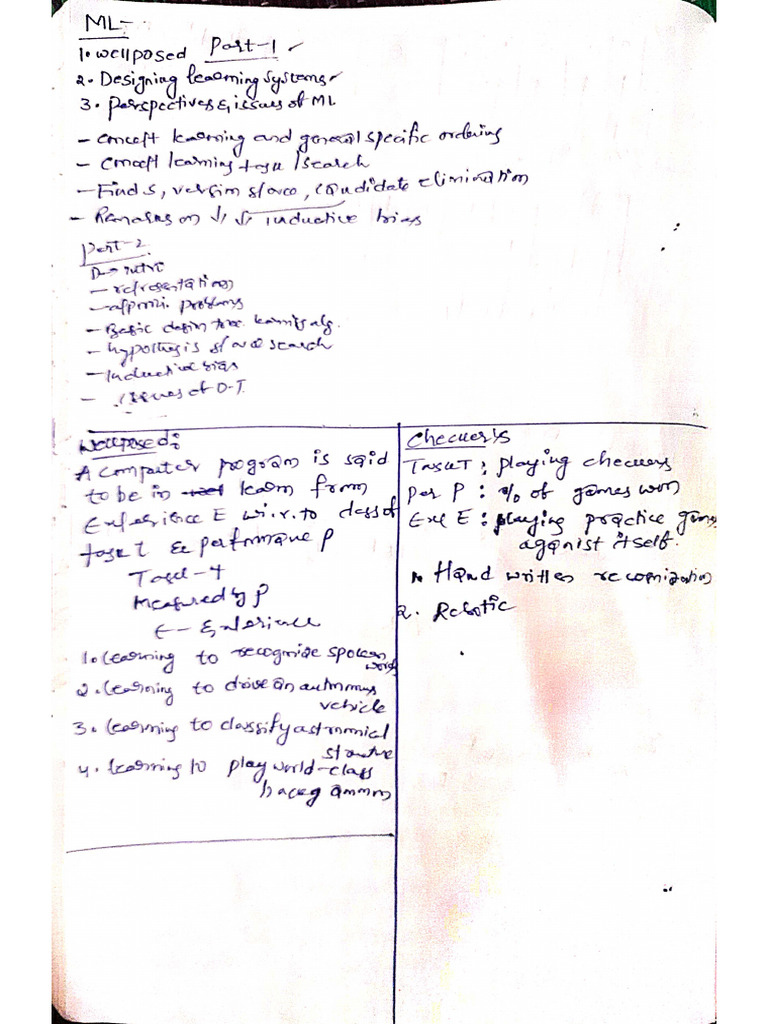 ML-
1. wellposed Part-1 ✓
2. Designing learning systems ✓
3. perspectives & issues of ML
- concept learning and general specific ordering
- concept learning task / search
- Find S, version space, candidate elimination
- Remarks on inductive bias
Part-2
- representation
- problems
- Basic learning alg.
- hypothesis space search
- Inductive bias
- issues of D.T.
Wellposed:
A computer program is said
to be in learn from
Experience E w.r.to class of
task T & performance P
Task - t
Measured by P
E - Experience
1. learning to recognize spoken
words
2. learning to drive an
vehicle
3. learning to classify
structure
4. learning to play world-class
Checkers
Task T : playing checkers
Per P : % of games won
Exe E : playing practice games
aganist itself.
Hand written
2. Robotic